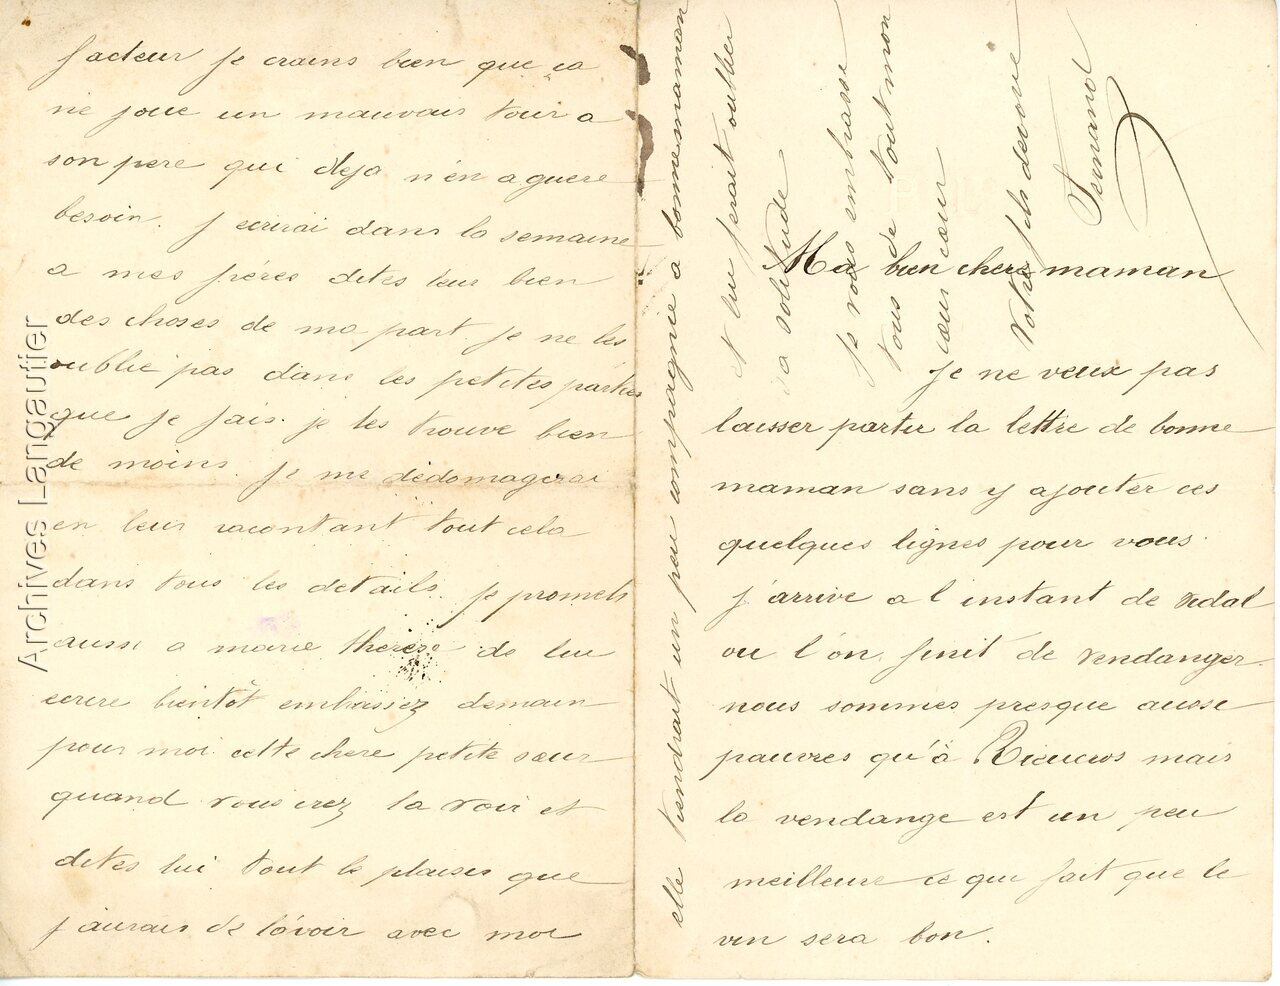 Ma bien chere maman
Je ne veux pas
laisser partir la lettre de bonne
maman sans y ajouter ces
quelques lignes pour vous.
J'arrive a l instant de vidal
ou l'on finit de vendanger.
nous sommes presque aussi
pauvres qu'à Rieucros mais
la vendange est un peu
meilleure ce qui fait que le
vin sera bon.
facteur je crains bien que ca
ne joue un mauvais tour a
son pere qui deja n'en a guere
besoin. J ecrirai dans la semaine
a mes fréres dites leur bien
des choses de ma part. Je ne les
oublie pas dans les petites parties
que je fais. je les trouve bien
de moins. Je me dédomagerai
en leur racontant tout cela
dans tous les details. Je promets
aussi a marie therese de lui
ecrire bientôt embrassez demain
pour moi cette chere petite sœur
quand vous irez la voir et
dites lui tout le plaisir que
j'aurais de l'avoir avec moi
elle tiendrait un peu compagnie a bonne maman
et lui ferait oublier
sa solitude
Je vous embrasse
tous de tout mon
cœur
Votre fils devoué
Fernand
Archives Langautier